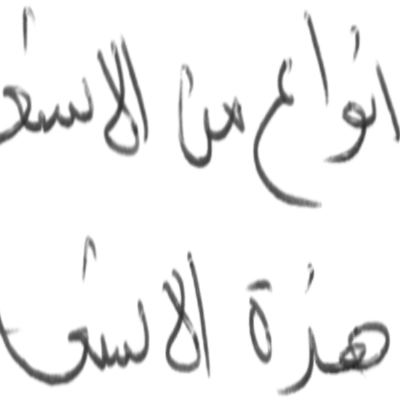 انواع من الاسع
هذة الاسع